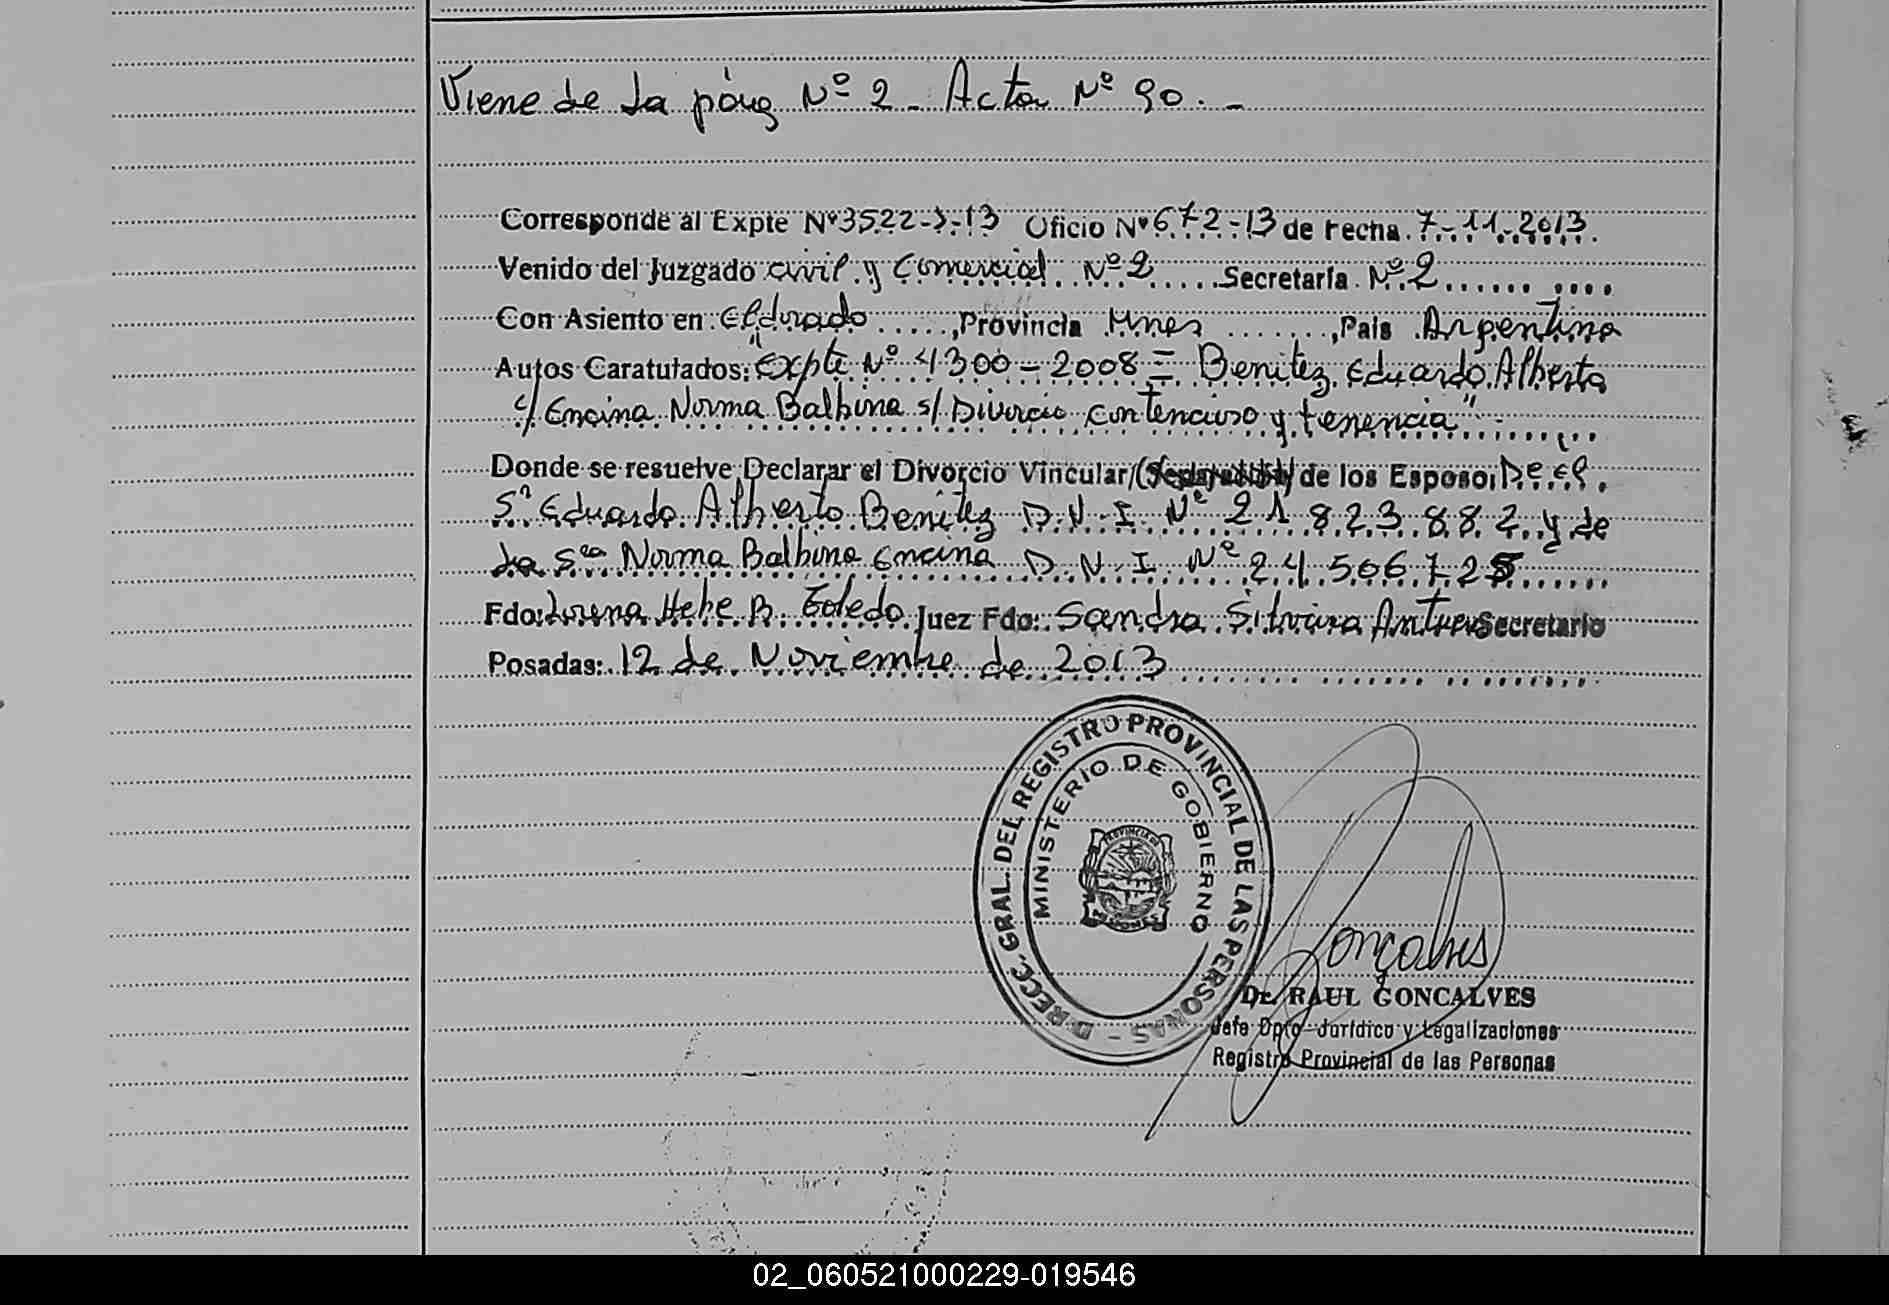 Viene de la pág Nº 2 - Acta Nº 90. -
Corresponde al Expte Nº 3522-J-13 Oficio Nº 672-13 de Fecha 7-11-2013.
Venido del Juzgado civil y Comercial Nº 2 Secretaría Nº 2
Con Asiento en Eldorado, Provincia Mnes, País Argentina
Autos Caratulados: "Expte Nº 4300-2008 = Benitez Eduardo Alberto
c/ Encina Norma Balbina s/ Divorcio contencioso y tenencia"
Donde se resuelve Declarar el Divorcio Vincular/( de los Esposo: De el
Sr Eduardo Alberto Benitez D.N.I. Nº 21.823.882 y de
la Sra Norma Balbina Encina D.N.I. Nº 24.506.725
Fdo: Lorena Hebe B. Toledo Juez Fdo: Sandra Secretario
Posadas: 12 de Noviembre de 2013
DIRECC. GRAL. DEL REGISTRO PROVINCIAL DE LAS PERSONAS -
MINISTERIO DE GOBIERNO
PROVINCIA DE
MISIONES
Gonçalves
Dr. RAUL GONCALVES
Jefe Dpto Jurídico y Legalizaciones
Registro Provincial de las Personas
02_060521000229-019546